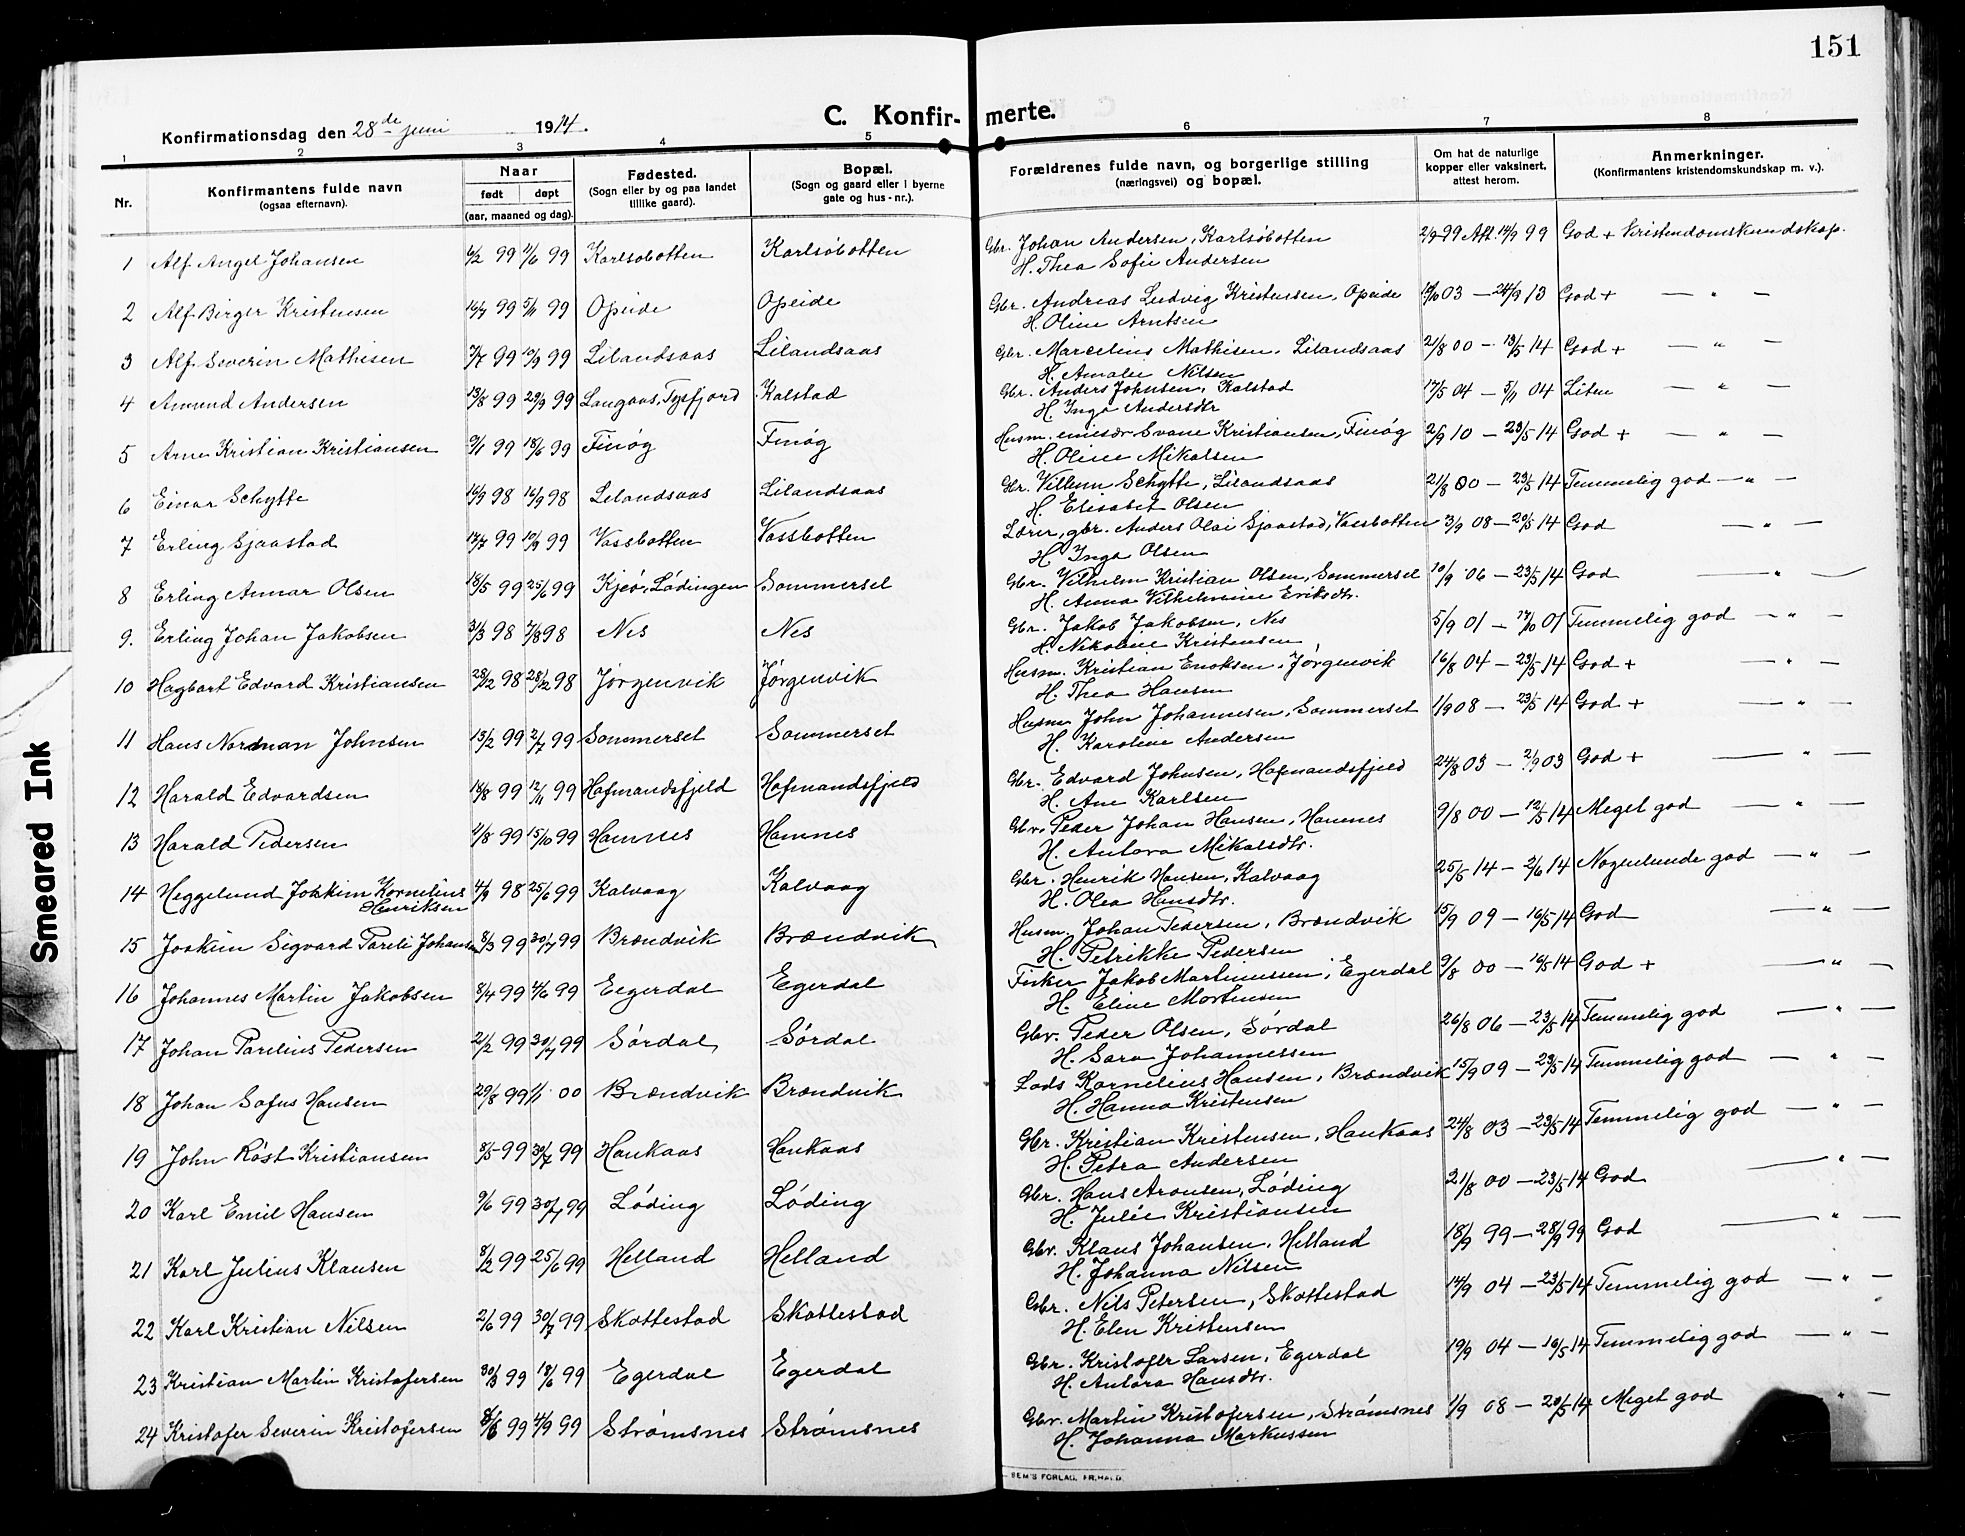 151
C. Konfir- merte.
Konfirmationsdag den 28de juni 1914.
1 2 3 4 5 6 7 8
Nr.
Konfirmantens fulde navn
(ogsaa efternavn).
Naar
født døpt
(aar, maaned og dag).
Fødested.
(Sogn eller by og paa landet
tillike gaard).
Bopæl.
(Sogn og gaard eller i byerne
gate og hus-nr.).
Forældrenes fulde navn, og borgerlige stilling
(næringsvei) og bopæl.
Om hat de naturlige
kopper eller vaksinert,
attest herom.
Anmerkninger.
(Konfirmantens kristendomskundskap m. v.).
1 Alf Angel Johansen 6/2 99 11/6 99 Karlsobotten Karlsöbotten Gbr. Johan Andersen, Karlsöbotten 2/9 99 Att. 14/9 99 God + Kristendomskundskap.
H. Thea Sofie Andersen
2 Alf Birger Kristensen 16/7 99 5/11 99 Opeide Opeide Gbr. Andreas Ludvig Kristensen, Opeide 03 — 24/9 13 God + — " —
H. Oline Arntsen
3 Alf Severin Mathisen 7/7 99 10/9 99 Lilandsaas Lilandsaas Gbr. Marcelius Mathisen, Lilandsaas 21/8 00 — 13/5 14 God + — " —
H. Amalie Nilsen
4 Amund Andersen 13/8 99 29/9 99 Langaas, Tysfjord Kalstad Gbr. Anders Johnsen, Kalstad 17/5 04 — 5/11 04 Liten — " —
H. Inga Andersdtr
5 Arne Kristian Kristiansen 9/1 99 18/6 99 Finög Finög Husm. Svane Kristiansen, Finög 2/9 10 — 23/5 14 God + — " —
H. Oline Mikalsen
6 Einar Schytte 16/9 98 98 Lilandsaas Lilandsaas Gbr. Villum Schytte, Lilandsaas 21/8 00 — 23/5 14 Temmelig god — " —
H. Elisabet Olsen
7 Erling Sjaastad 17/7 99 10/9 99 Vassbotten Vassbotten Lærer, gbr. Anders Olai Sjaastad, Vassbotten 3/9 08 — 20/5 14 God — " —
H. Inga Olsen
8 Erling Annar Olsen 18/5 99 25/6 99 Kjeö, Lödingen Sommersel Gbr. Vilhelm Kristian Olsen, Sommersel 10/9 06 — 23/5 14 God — " —
H. Anna Vilhelmine Eriksdtr.
9. Erling Johan Jakobsen 31/3 98 7/8 98 Nes Nes Gbr. Jakob Jakobsen, Nes 5/9 01 — 17/10 01 Temmelig god — " —
H. Nikoline Kristensen
10 Hagbart Edvard Kristiansen 98 98 Jørgenvik Jørgenvik Husm. Kristian Enoksen, Jørgenvik 16/8 04 — 23/5 14 God + — " —
H. Thea Hansen
11 Hans Nordman Johnsen 13/2 99 2/7 99 Sommerset Sommerset Husm. John Johannesen, Sommerset 1/9 08 — 23/5 14 God + — " —
H. Karoline Andersen
12 Harald Edvardsen 18/8 99 12/11 99 Hofmandsfjeld Hofmandsfjeld Gbr. Edvard Johnsen, Hofmandsfjeld 24/8 03 — 2/9 03 God + — " —
H. Ane Karlsen
13 Harald Pedersen 1/8 99 15/10 99 Hamnes Hamnes Gbr. Peder Johan Hansen, Hamnes 9/8 00 — 12/5 14 Meget god — " —
H. Antora Mikalsdtr.
14 Heggelund Joakim Kornelius
Henriksen 4/9 98 25/6 99 Kalvaag Kalvaag Gbr. Henrik Hansen, Kalvaag 25/5 14 — 2/6 14 Nogenlunde god — " —
H. Olea Hansdtr.
15 Joakim Sigvard Pareli Johansen 8/3 99 30/7 99 Brændvik Brændvik Husm. Johan Pedersen, Brændvik 15/9 09 — 16/5 14 God — " —
H. Petrikke Pedersen
16 Johannes Martin Jakobsen 8/4 99 4/6 99 Egerdal Egerdal Fisker Jakob Martinussen, Egerdal 9/8 00 — 16/5 14 God + — " —
H. Eline Mortensen
17 Johan Parelius Pedersen 2/2 99 30/7 99 Sördal Sördal Gbr. Peder Olsen, Sördal 26/8 06 — 23/5 14 Temmelig god — " —
H. Sara Johannessen
18 Johan Sofus Hansen 29/8 99 1/1 00 Brændvik Brændvik Lods Kornelius Hansen, Brændvik 15/9 09 — 23/5 14 Temmelig god — " —
H. Hanna Kristensen
19 John Röst Kristiansen 8/5 99 30/7 99 Haukaas Haukaas Gbr. Kristian Kristensen, Haukaas 24/8 03 — 23/5 14 Temmelig god — " —
H. Petra Andersen
20 Karl Emil Hansen 9/6 99 30/7 99 Löding Löding Gbr. Hans Aronsen, Löding 21/8 00 — 23/5 14 God — " —
H. Julie Kristiansen
21 Karl Julius Klausen 8/2 99 25/6 99 Helland Helland Gbr. Klaus Johansen, Helland 18/9 99 — 28/9 99 God — " —
H. Johanna Nilsen
22 Karl Kristian Nilsen 2/6 99 30/7 99 Skottestad Skottestad Gbr. Nils Petersen, Skottestad 14/9 04 — 23/5 14 Temmelig god — " —
H. Elen Kristensen
23 Kristian Martin Kristofersen 30/3 99 18/6 99 Egerdal Egerdal Gbr. Kristofer Larsen, Egerdal 19/9 04 — 16/5 14 Temmelig god — " —
H. Antora Hansdtr.
24 Kristofer Severin Kristofersen 99 4/9 99 Strömsnes Strömsnes Gbr. Martin Kristofersen, Strömsnes 1/9 08 — 20/5 14 Meget god " —
H. Johanna Markussen
SEM'S FORLAG, FR.HALD.
Smeared Ink